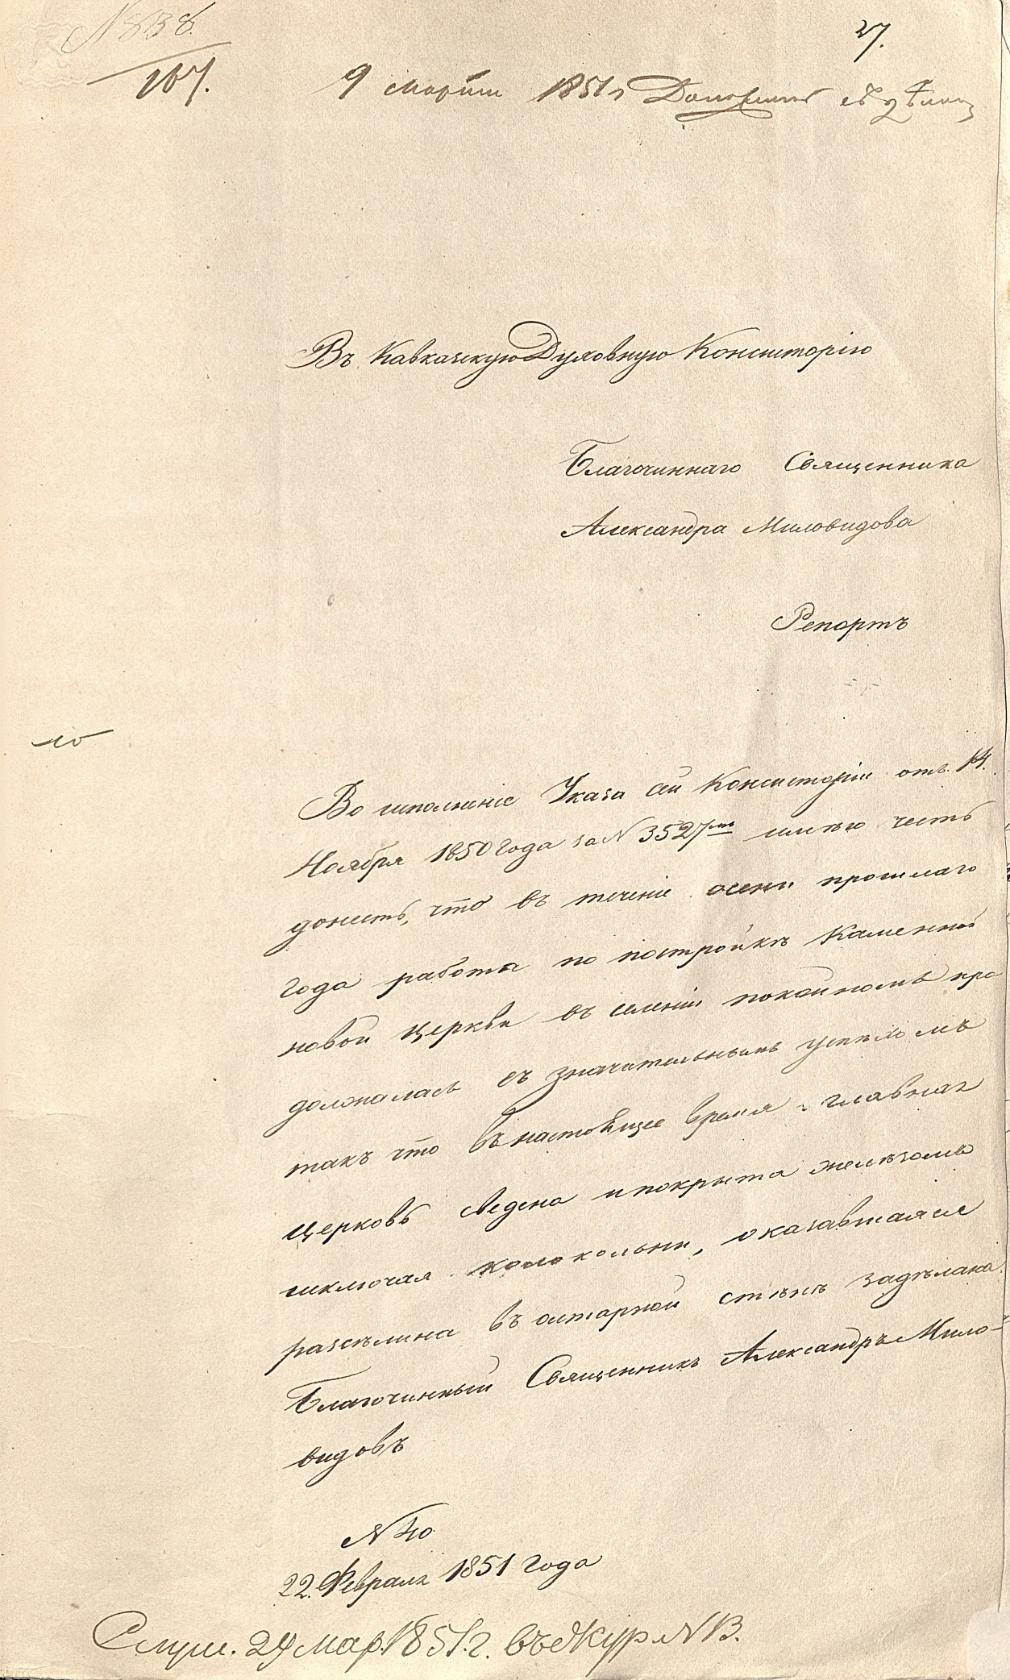 N 838.
27.
167.
9 Марта 1851 г Доложить съ дѣломъ
Въ Кавказскую Духовную Консисторію
Благочиннаго Священника
Александра Миловидова
Репортъ
Во исполненіе Указа сей Консисторіи отъ 14.
Ноября 1850 года за N 3527мъ имѣю честь
донесть, что въ теченіе осени прошлаго
года работа по постройкѣ Каменной
новой церкви въ селеніи покойномъ про
должалась съ значительнымъ успѣхомъ
такъ что въ настоящее время главная
церковь сведена и покрыта желѣзомъ
исключая колокольни, оказавшаяся
разсѣлина въ олтарной стѣнѣ задѣлана.
Благочинный Священникъ Александръ Мило-
видовъ
N 40
22. Февраля 1851 года
Слуш. 29 Мар. 1851. г. въ Жур N 13.